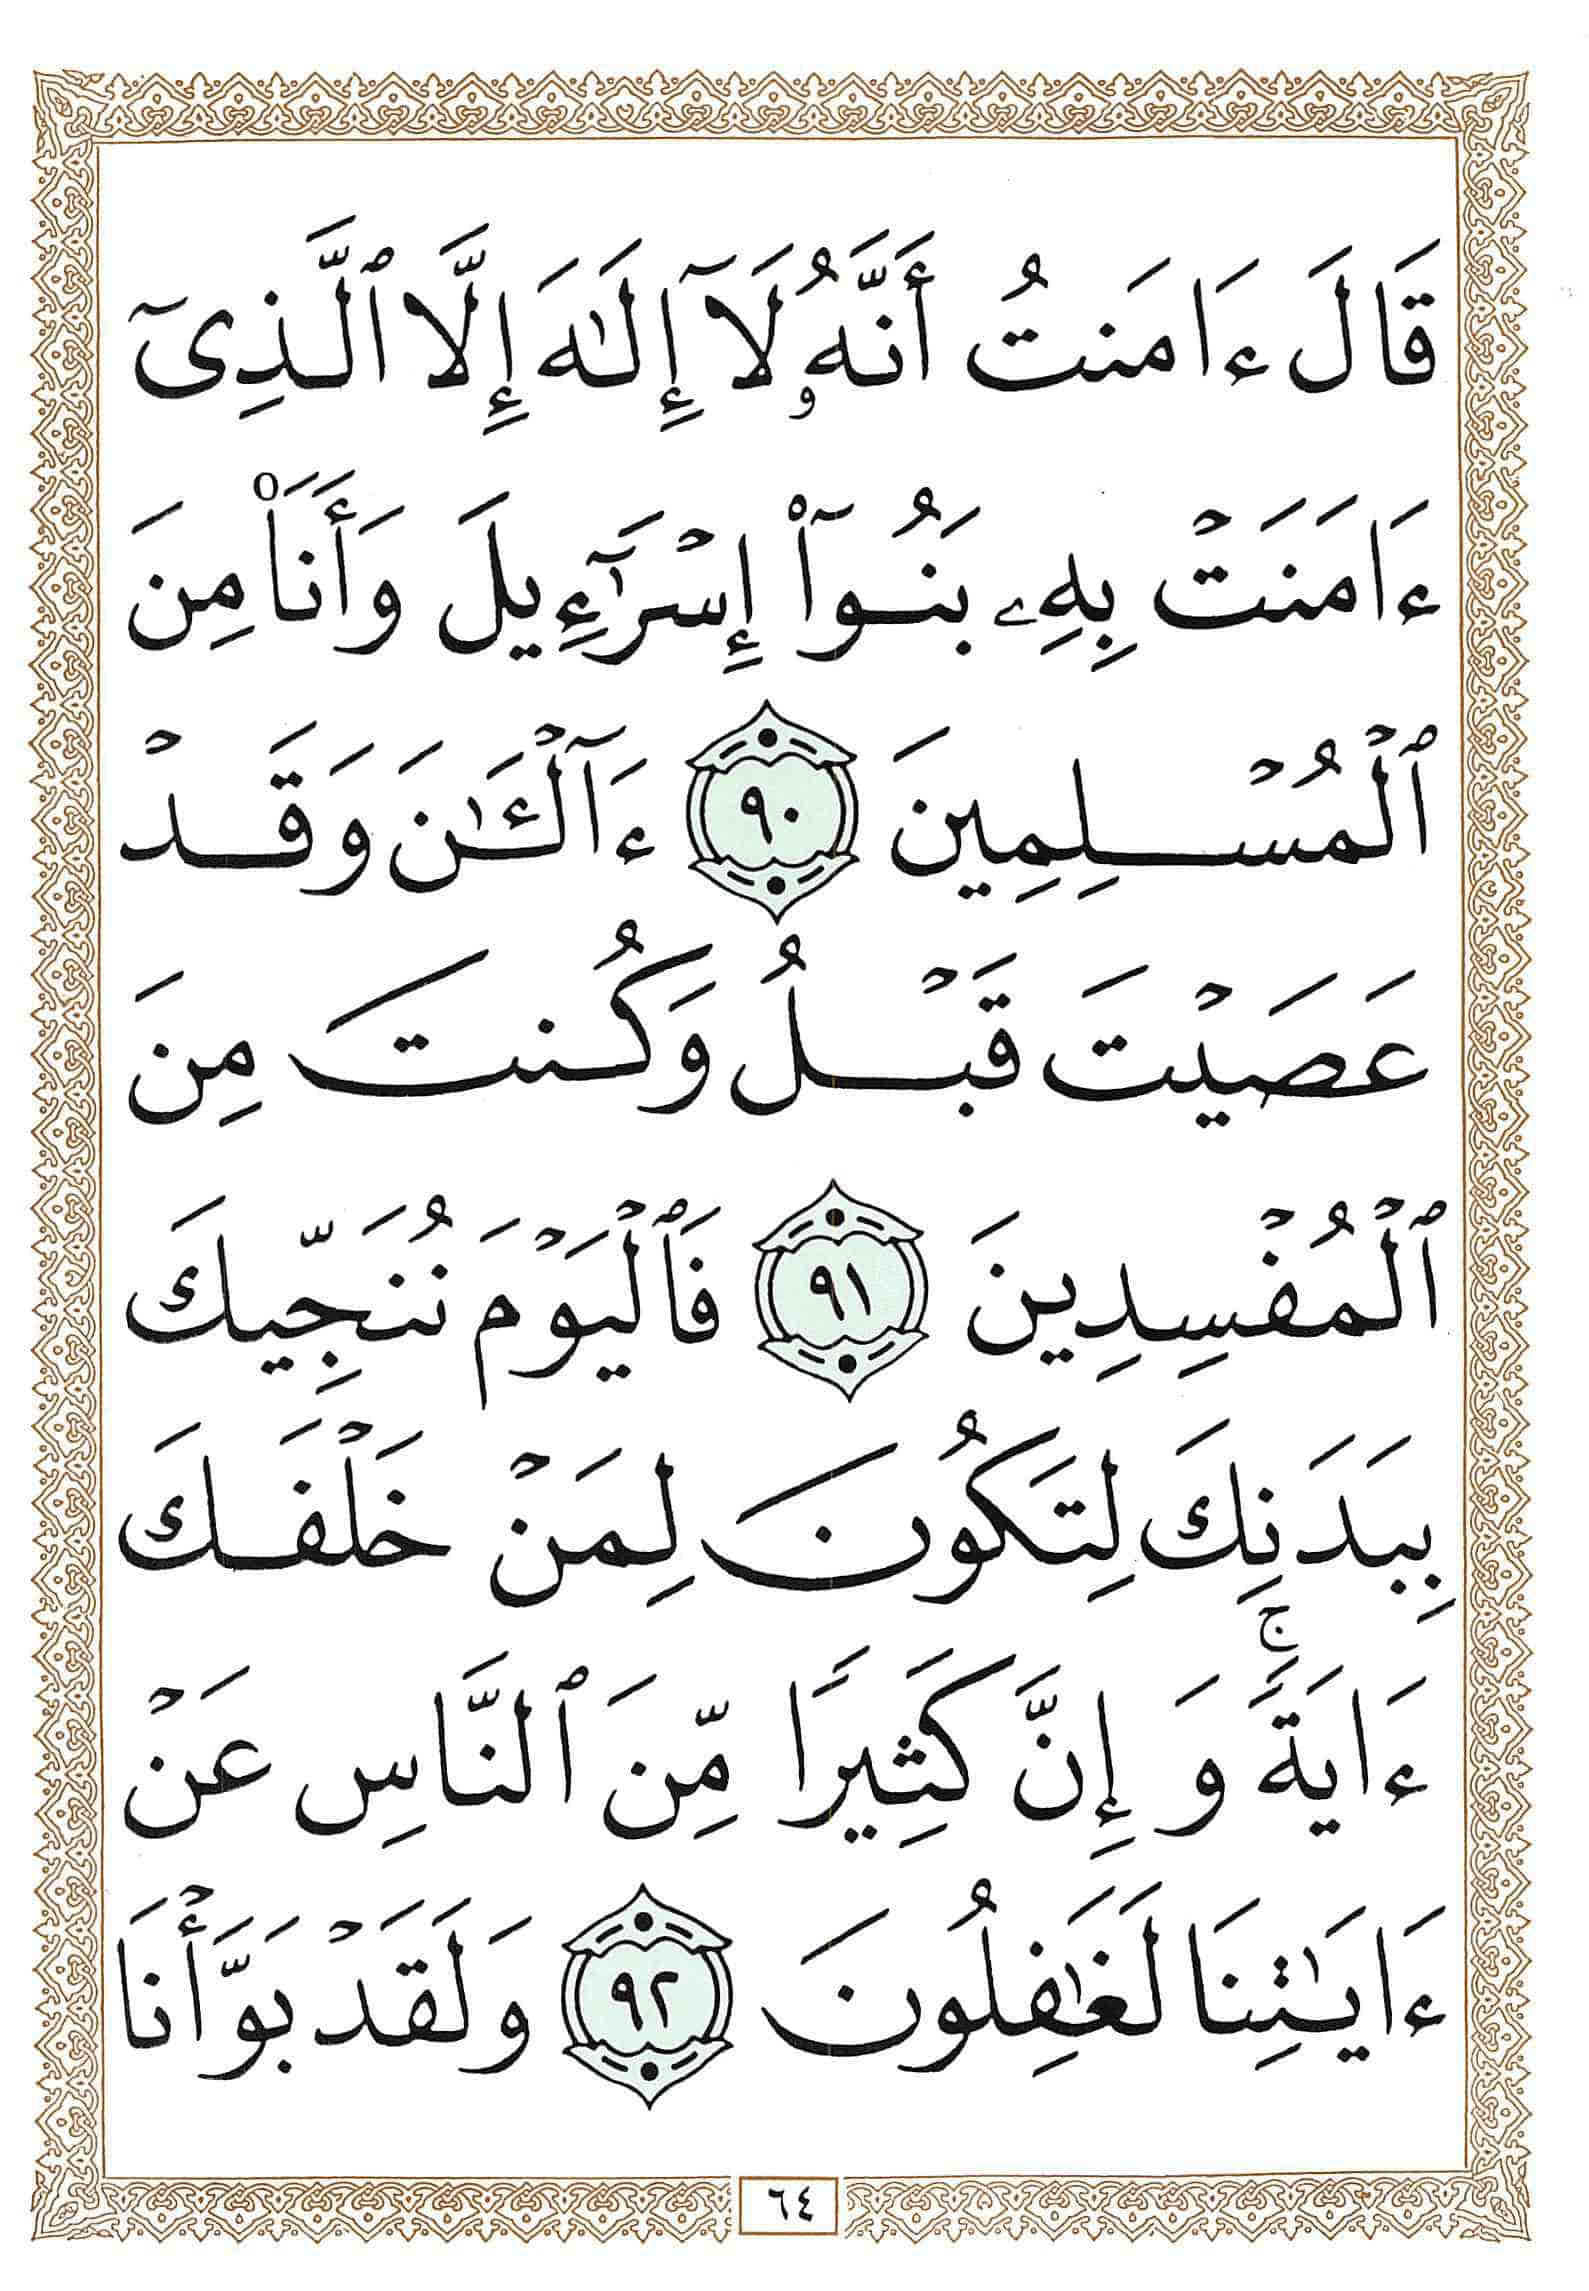 قَالَ ءَامَنتُ أَنَّهُۥ لَآ إِلَٰهَ إِلَّا ٱلَّذِىٓ
ءَامَنَتْ بِهِۦ بَنُوٓا۟ إِسْرَٰٓءِيلَ وَأَنَا۠ مِنَ
ٱلْمُسْلِمِينَ ٩٠ ءَآلْـَٰٔنَ وَقَدْ
عَصَيْتَ قَبْلُ وَكُنتَ مِنَ
ٱلْمُفْسِدِينَ ٩١ فَٱلْيَوْمَ نُنَجِّيكَ
بِبَدَنِكَ لِتَكُونَ لِمَنْ خَلْفَكَ
ءَايَةً ۚ وَإِنَّ كَثِيرًا مِّنَ ٱلنَّاسِ عَنْ
ءَايَٰتِنَا لَغَٰفِلُونَ ٩٢ وَلَقَدْ بَوَّأْنَا
٦٤